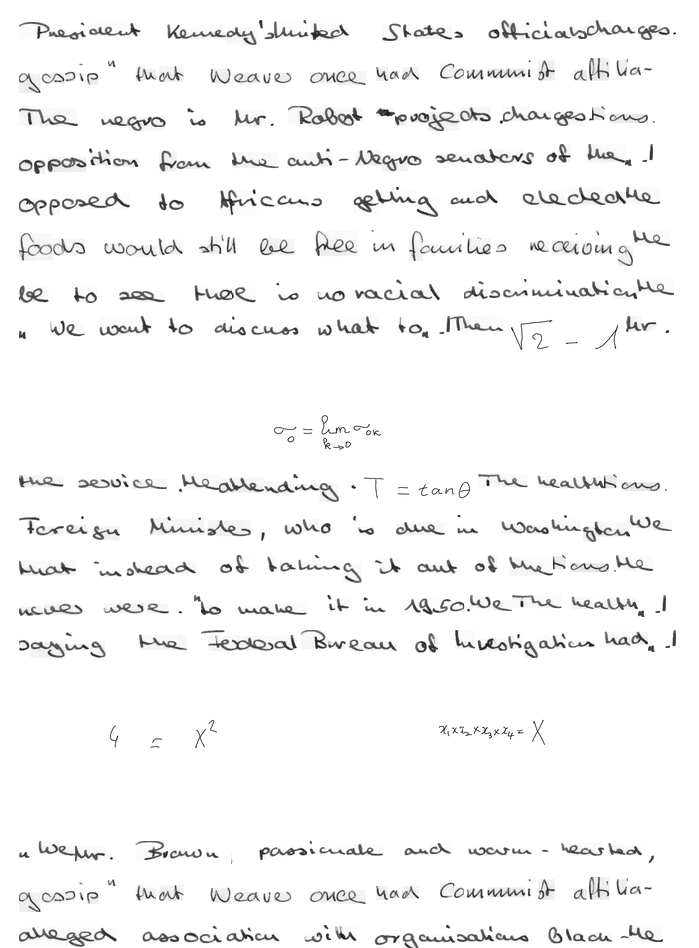 President Kennedy's United States officials charges.
gossip" that Weaver once had Communist affilia-
The negro is Mr. Robot projects, changes tions.
opposition from the anti-Negro senators of the " I
opposed to Africans getting and elected the
foods would still be free in families receiving the
be to see there is no racial discrimination, the
" We want to discuss what to " I Then √2 - 1 Mr.
σ_0 = lim_{k→0} σ_{0k}
the service. He attending . T = tanθ The health tions.
Foreign Minister, who is due in Washington We
that instead of taking it out of the tions. He
never were. "to make it in 1950. We The health " I
saying the Federal Bureau of Investigation had " I
4 = x^2 x_1×x_2×x_3×x_4= X
" We Mr. Brown, passionate and warm-hearted,
gossip" that Weaver once had Communist affilia-
alleged association with organisations black-the